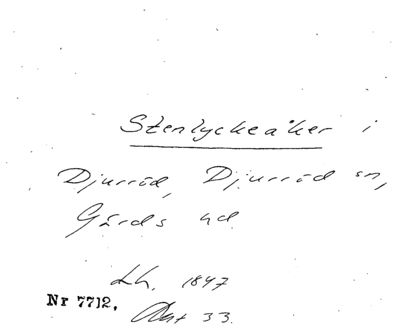 Stenlyckeåker i
Djurröd, Djurröd sn,
Gärds hd.
Lh. 1847
Nr 7712, Akt 33.